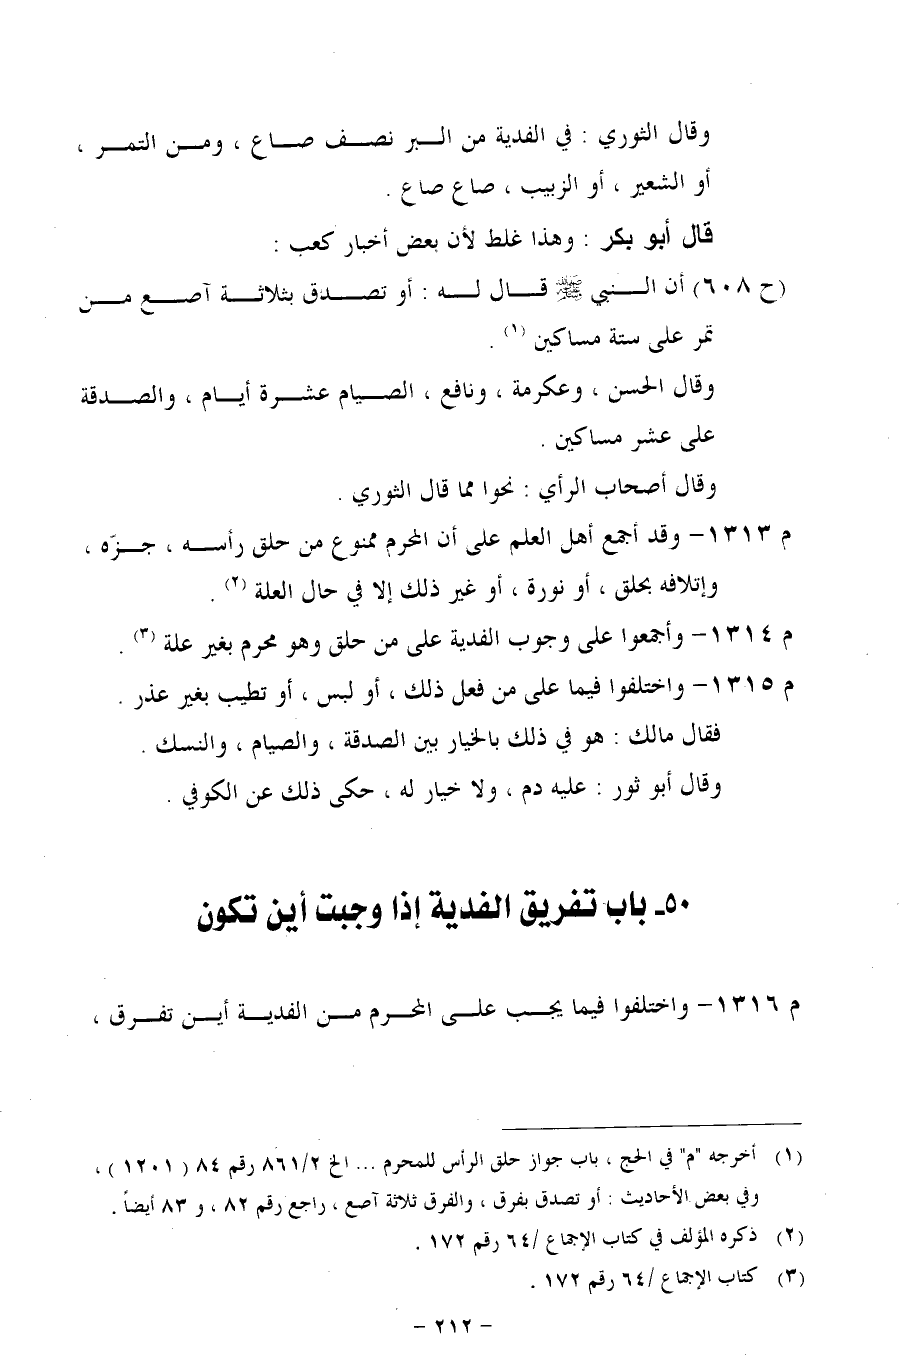 وقال الثوري : في الفدية من البر نصف صاع ، ومن التمر ،
أو الشعير ، أو الزبيب ، صاع صاع .
قال أبو بكر : وهذا غلط لأن بعض أخبار كعب :
(ح ٦٠٨) أن النبي ﷺ قال له : أو تصدق بثلاثة آصع من
تمر على ستة مساكين (١) .
وقال الحسن ، وعكرمة ، ونافع ، الصيام عشرة أيام ، والصدقة
على عشر مساكين .
وقال أصحاب الرأي : نحوا مما قال الثوري .
م ١٣١٣- وقد أجمع أهل العلم على أن المحرم ممنوع من حلق رأسه ، جزّه ،
وإتلافه بحلق ، أو نورة ، أو غير ذلك إلا في حال العلة (٢) .
م ١٣١٤- وأجمعوا على وجوب الفدية على من حلق وهو محرم بغير علة (٣) .
م ١٣١٥- واختلفوا فيما على من فعل ذلك ، أو لبس ، أو تطيب بغير عذر .
فقال مالك : هو في ذلك بالخيار بين الصدقة ، والصيام ، والنسك .
وقال أبو ثور : عليه دم ، ولا خيار له ، حكى ذلك عن الكوفي .
٥٠- باب تفريق الفدية إذا وجبت أين تكون
م ١٣١٦- واختلفوا فيما يجب على المحرم من الفدية أين تفرق ،
(١) أخرجه "م" في الحج ، باب جواز حلق الرأس للمحرم ... الخ ٨٦١/٢ رقم ٨٤ ( ١٢٠١ ) ،
وفي بعض الأحاديث : أو تصدق بفرق ، والفرق ثلاثة آصع ، راجع رقم ٨٢ ، و ٨٣ أيضاً .
(٢) ذكره المؤلف في كتاب الإجماع /٦٤ رقم ١٧٢ .
(٣) كتاب الإجماع /٦٤ رقم ١٧٢ .
- ٢١٢ -